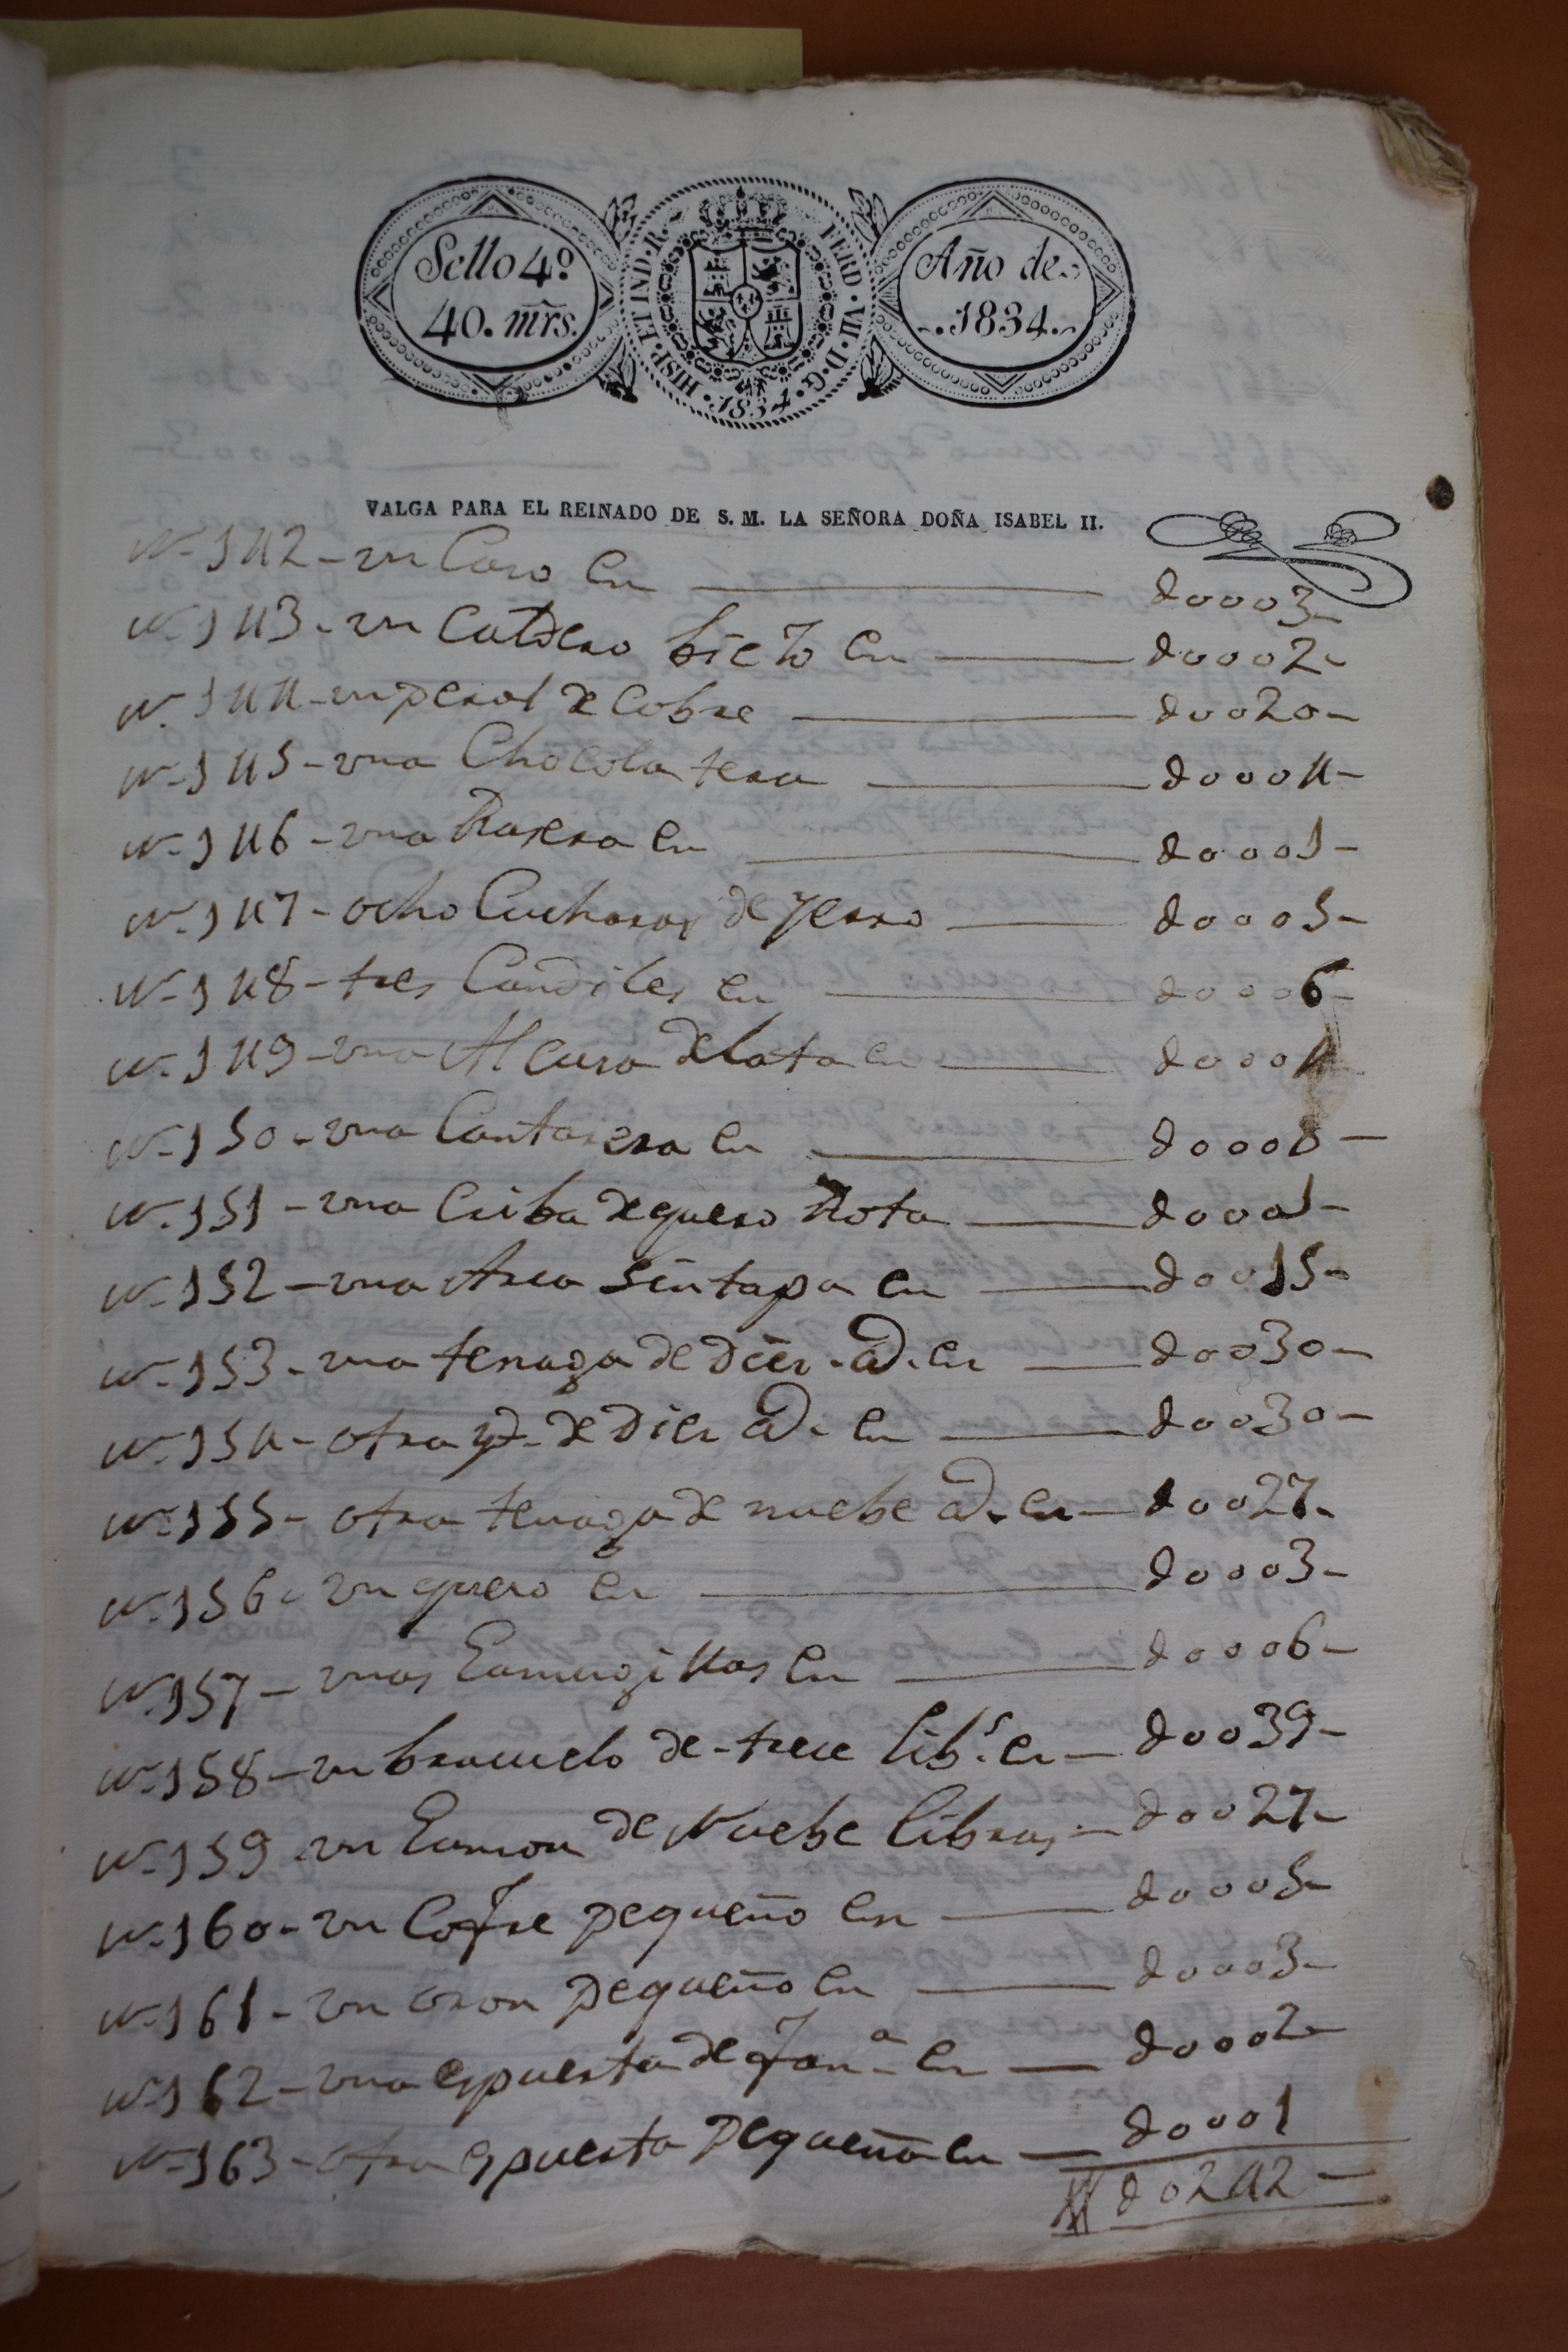 Sello 4º
40. mrs.
HISP. ET IND. R. FERD. VII. D. G. 1834.
Año de
1834.
VALGA PARA EL REINADO DE S. M. LA SEÑORA DOÑA ISABEL II.
N.142 - un Caso en d0003-
N.143 - un Caldero biejo en d0002-
N.144 - un perol de Cobre d0020-
N.145 - una Chocolatera d0004-
N.146 - una Rasera en d0001-
N.147 - ocho Cucharas de yerro d0005-
N.148 - tres Candiles en d0006-
N.149 - una Alcusa de lata en d0004
N.150 - una Cantarera en d0008-
N.151 - una Criba de quero Rota d0001-
N.152 - una Arca sin tapa en d0015-
N.153 - una tenaga de Dies @. en d0030-
N.154 - otra yd. de Dies @. en d0030-
N.155 - otra tenaga de nuebe @. en d0027-
N.156 - un quero en d0003-
N.157 - unas en d0006-
N.158 - un brasuelo de trece libs. en d0039-
N.159 un de Nuebe libras d0027-
N.160 - un Cofre pequeño en d0005-
N.161 - un oron pequeño en d0003-
N.162 - una espuerta de fana. en d0002-
N.163 - otra espuerta pequeña en d0001
d0242-